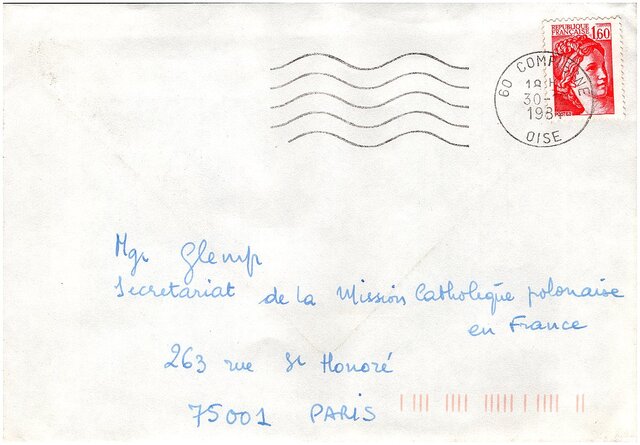 REPUBLIQUE
FRANÇAISE 1,60
60 COMPIEGNE
18H
30-
198
OISE
Mgr Glemp
Secretariat de la Mission Catholique polonaise
en France
263 rue St Honoré
75001 PARIS